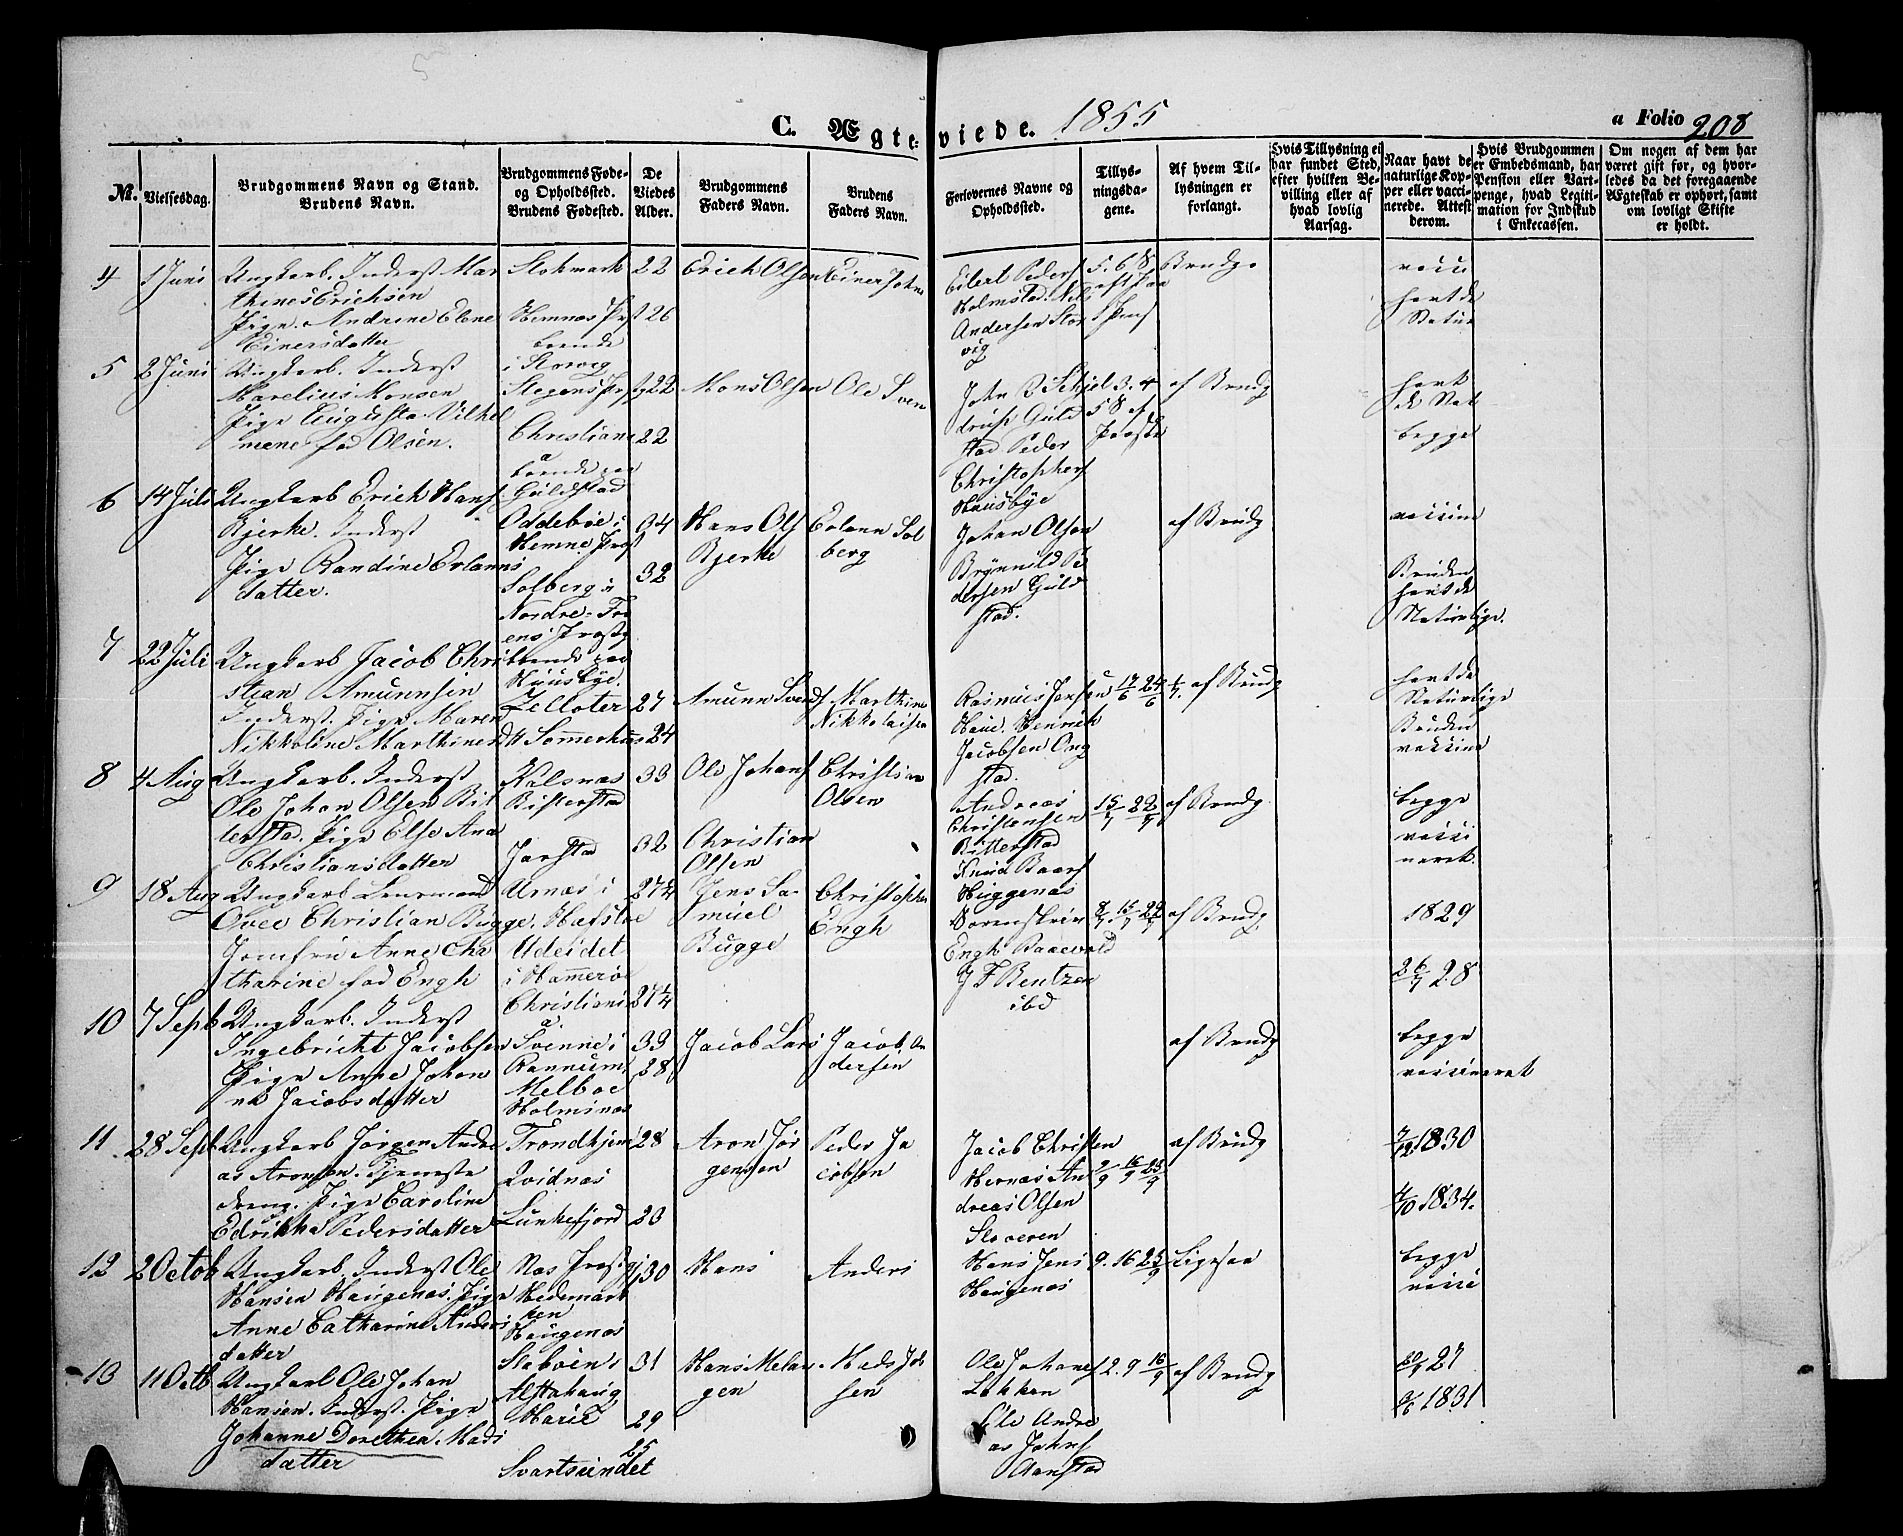 C. Ægteviede. 1855
a Folio 208
No.
Vielsesdag.
Brudgommens Navn og Stand.
Brudens Navn.
Brudgommens Føde-
og Opholdssted.
Brudens Fødested.
De
Viedes
Alder.
Brudgommens
Faders Navn.
Brudens
Faders Navn.
Forlovernes Navne og
Opholdssted.
Tillys-
ningsda-
gene.
Af hvem Til-
lysningen er
forlangt.
Hvis Tillysning ei
har fundet Sted,
efter hvilken Be-
villing eller af
hvad lovlig
Aarsag.
Naar havt de
naturlige Kop-
per eller vacci-
nerede. Attest
derom.
Hvis Brudgommen
er Embedsmand, har
Pension eller Vart-
penge, hvad Legiti-
mation for Indskud
i Enkecassen.
Om nogen af dem har
været gift før, og hvor-
ledes da det foregaaende
Ægteskab er ophørt, samt
om lovligt Skifte
er holdt.
4 1 Juni
Ungkarl. Inderst Mar
thenes Erichsen
Pige. Andrine Elene
Einersdatter
Stokmark
Hemnæs Prst
boende
i Storvig
22
26
Erich Olsen
Einer Johns
Eilert Peders
Holmstad. Nils
Andersen Stor
vig
5. 6. 8
eft Paa
Brudg.
vacci
havt de
Natur
5 2 Juni
Ungkarl. Inderst
Marelius Monsen
Pige Augusta Vilhel
mene fød Olsen.
Stegens Prstg
Christiani
a
boende paa
Guldstad
22
22
Mons Olsen
Ole Sven
John
Guld
stad Peder
Christophers
Huusbye
3. 4
5 8 af
Paaske
af Brudg
havt
de Nat
begge
6 14 Juli
Ungkarl Erich Hans
Bjerke. Inderst
Pige Randine Erlanns
datter.
Oddebøe i
Hemne Prst
Solberg i
Nordre-Fro
ens Prestg
boende paa
Huusbye.
34
32
Hans Ols
Bjerke
Erlann Sol
berg
Johan Olsen
Brønnild Pe
dersen Guld
stad.
af Brudg
vaccine
Bruden
havt de
Naturlige.
7 22 Juli
Ungkarl Jacob Chri
stian Amunnsen
Inderst. Pige Maren
Nikkoline Marthinesd
Zelloter
Sommerhus
27
24
Amunn Svends
Marthin
Nikkolaisen
Rasmus Jensen
Haue. Henrich
Jacobsen Eng
stad.
17/6 24/6 1/7.
af Brudg
havt de
Naturlige
Bruden
vaccine
8 4 Aug
Ungkarl. Inderst
Ole Johan Olsen Bit
terstad. Pige Else Ane
Christiansdatter
Kalsnæs
Bitterstad
Jarstad
33
32
Ole Johans
Christian
Olsen
Christian
Olsen
Andreas
Christensen
Bitterstad
Knud Baars
Huggenæs
15/7 22/7
af Brudg.
begge
vacci
neret.
9 18 Aug
Ungkarl Lensmand
Ovee Christian Bugge.
Jomfru Anne Cha
tharine fød Engh
Urnæs i
Hafsloe
Udeidet
i Hammerøe
Christiani
a
27¼
27¼
Jens Sa-
muel
Bugge
Christopher
Engh
Sorenskriv
Engh Baaevold
J F Bentzen
ibd
8/7. 15/7 22/7
af Brudg.
1829
26/7 28
10 7 Sept
Ungkarl. Inderst
Ingebricht Jacobsen
Pige Anne Johan
na Jacobsdatter
Svinne i
Rannum,
Melboe
Holminæs
33
28
Jacob Lars
Jacob An
dersen
af Brudg
begge
vaccineret
11 28 Sept
Ungkarl Jørgen Andre
as Aronsen. Tjeneste
dreng. Pige Caroline
Edrikka Pedersdatter
Trondhjem
Qvidnæs
Lunkefjord
28
20
Aron Jør
gensen
Peder Ja
cobsen
Jacob Christen
Hernæs An
dreas Olsen
Sloveren
2/9 16/9 23/9
af Brudg
7/12 1830
4/10 1834.
12 2 Octob
Ungkarl. Inderst Ole
Hansen Haugenæs. Pige
Anne Catharine Anders
datter
Næs Prestg
Hedemark
ken
Haugenæs
30
Hans
Anders
Hans Jens
Haugenæs
9. 16 23/9
Ligesaa
begge
vacci
13 11 Octb
Ungkarl Ole Johan
Hansen. Inderst. Pige
Johanne Dorethea. Mads
datter
Støbøen i
Alstahaug
Marie
Svartsundet
31
29
25
Hans Melan
gen
Mads Joh
sen
Ole Johanes
Løkken
Ole Andre
as Johns
Aanstad
2. 9 16/9
af Brudg
27
1831